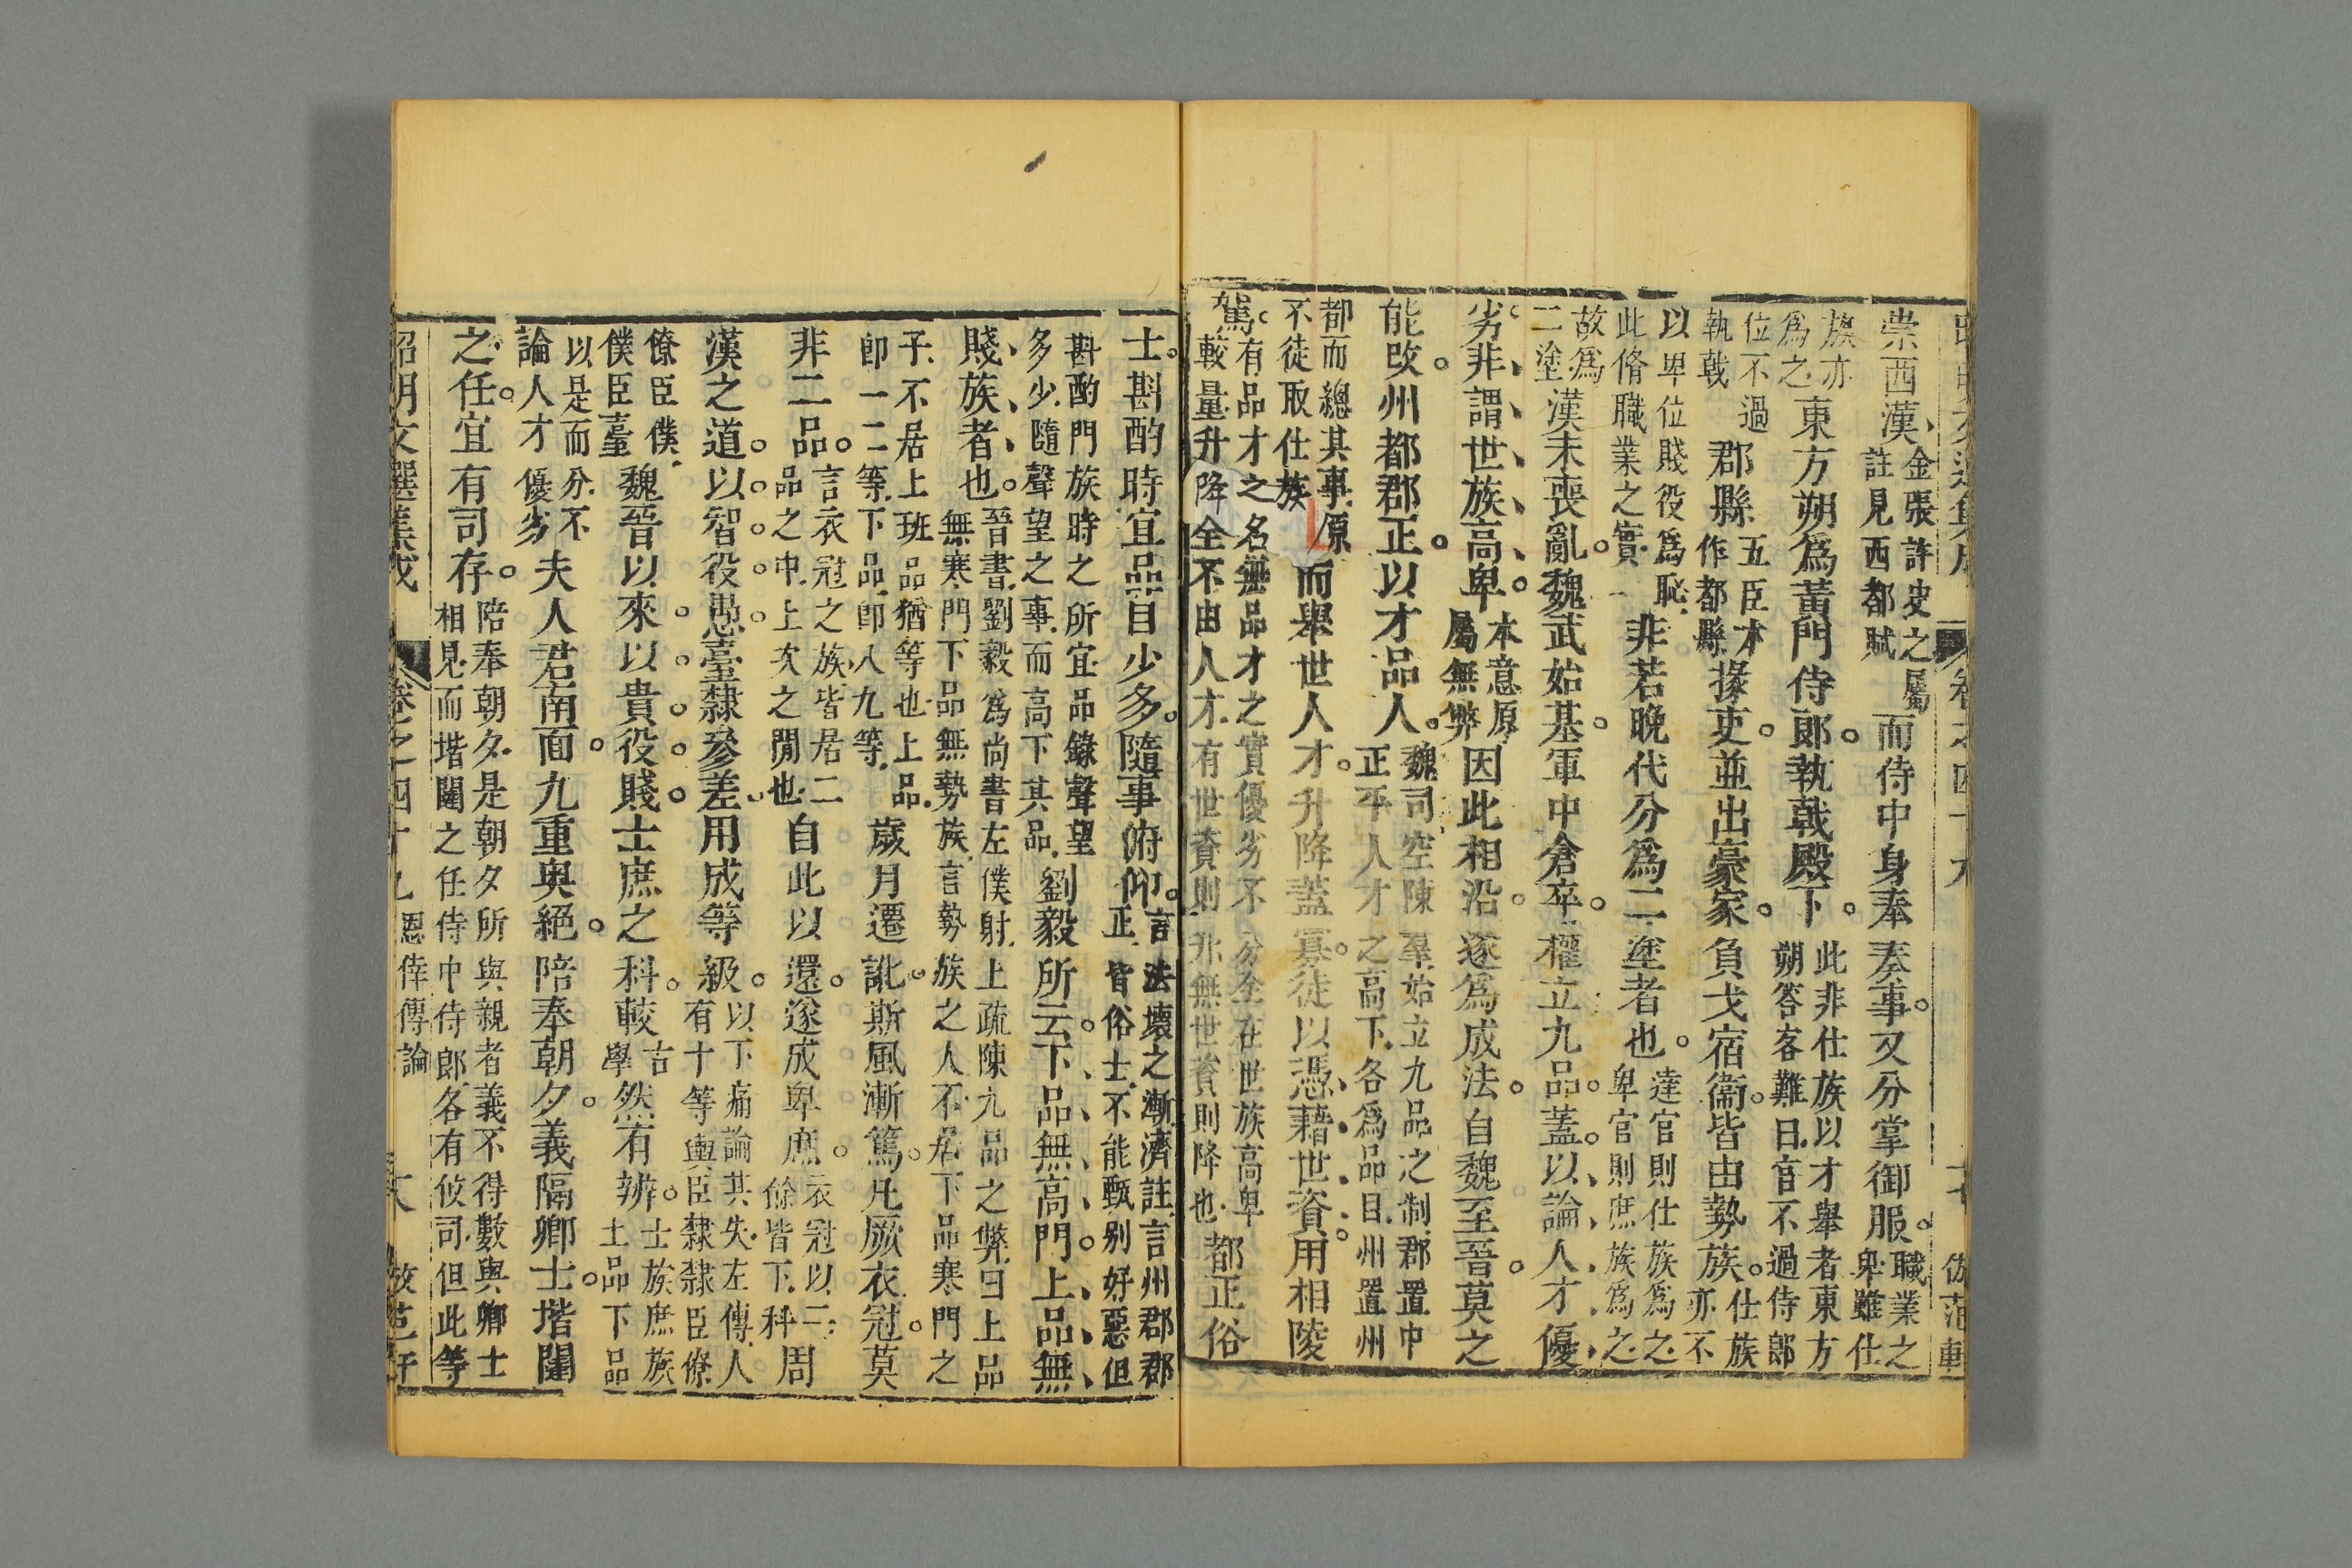 崇西漢金張許史之屬註見西都賦而侍中身奉奏事又分掌御服職業之卑雖仕
族亦為之東方朔為黃門侍郎執戟殿下此非仕族以才舉者東方朔答客難曰官不過侍郎
位不過執戟郡縣五臣本作都縣掾吏並出豪家負戈宿衞皆由勢族仕族亦不
以卑位賤役為恥此脩職業之實非若晚代分為二塗者也達官則仕族為之卑官則庶族為之
故為二塗漢末喪亂魏武始基軍中倉卒權立九品蓋以論人才優
劣非謂世族高卑本意原屬無弊因此相沿遂為成法自魏至晉莫之
能改州都郡正以才品人魏司空陳羣始立九品之制郡置中正平人才之高下各為品目州置州
都而總其事原不徒取仕族而舉世人才升降蓋寡徒以憑藉世資用相陵
駕有品才之名無品才之實優劣不分全在世族高卑較量升降全不由人才有世資則升無世資則降也都正俗
士斟酌時宜品目少多隨事俯仰言法壞之漸濟註言州郡郡正皆俗士不能甄别好惡但
斟酌門族時之所宜品錄聲望多少隨聲望之事而高下其品劉毅所云下品無高門上品無
賤族者也晉書劉毅為尚書左僕射上疏陳九品之弊曰上品無寒門下品無勢族言勢族之人不居下品寒門之
子不居上班品猶等也上品卽一二等下品卽八九等歲月遷訛斯風漸篤凡厥衣冠莫
非二品言衣冠之族皆居二品之中上次之閒也自此以還遂成卑庶衣冠以二餘皆下科周
漢之道以智役愚臺隸參差用成等級以下痛論其失左傳人有十等輿臣隸隸臣僚
僚臣僕僕臣臺魏晉以來以貴役賤士庶之科較古學然有辨士族庶族士品下品
以是而分不論人才優劣夫人君南面九重奥絕陪奉朝夕義隔卿士堦闥
之任宜有司存陪奉朝夕是朝夕所與親者義不得數與卿士相見而堦闥之任侍中侍郎各有攸司但此等
昭明文選集成 卷之四十九 恩倖傳論